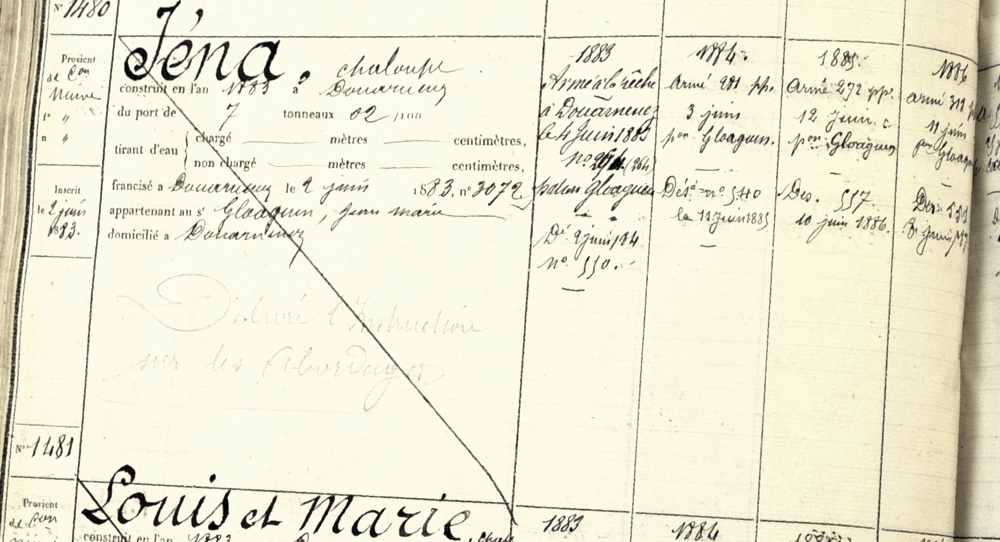 N° 1480
Provient
de Con
Neuve
Inscrit
le 2 juin
1883.
Jéna, chaloupe
construit en l'an 1883 à Douarnenez
du port de 7 tonneaux 02 /100
tirant d'eau { chargé mètres centimètres,
non chargé mètres centimètres,
francisé à Douarnenez le 2 juin 1883. n° 3072
appartenant au sr Gloaguen, Jean marie
domicilié à Douarnenez
Délivré l'Instruction
sur les Abordages
1883
Armé à la pêche
à Douarnenez
le 4 Juin 1883
n° 264
patron Gloaguen
Dé 2 juin 84
n° 550.
1884.
Armé 281 pp.
3 juin
pon Gloaguen.
Désé n° 540
le 11 Juin 1885
1885.
Armé 272 pp.
12 Juin
pon Gloaguen
Des. 557
10 juin 1886.
1886
armé 311
11 juin
pon Gloag
Des. 531
N° 1481
Provient
de Con
Louis et Marie,
construit en l'an 1883
1883
1884